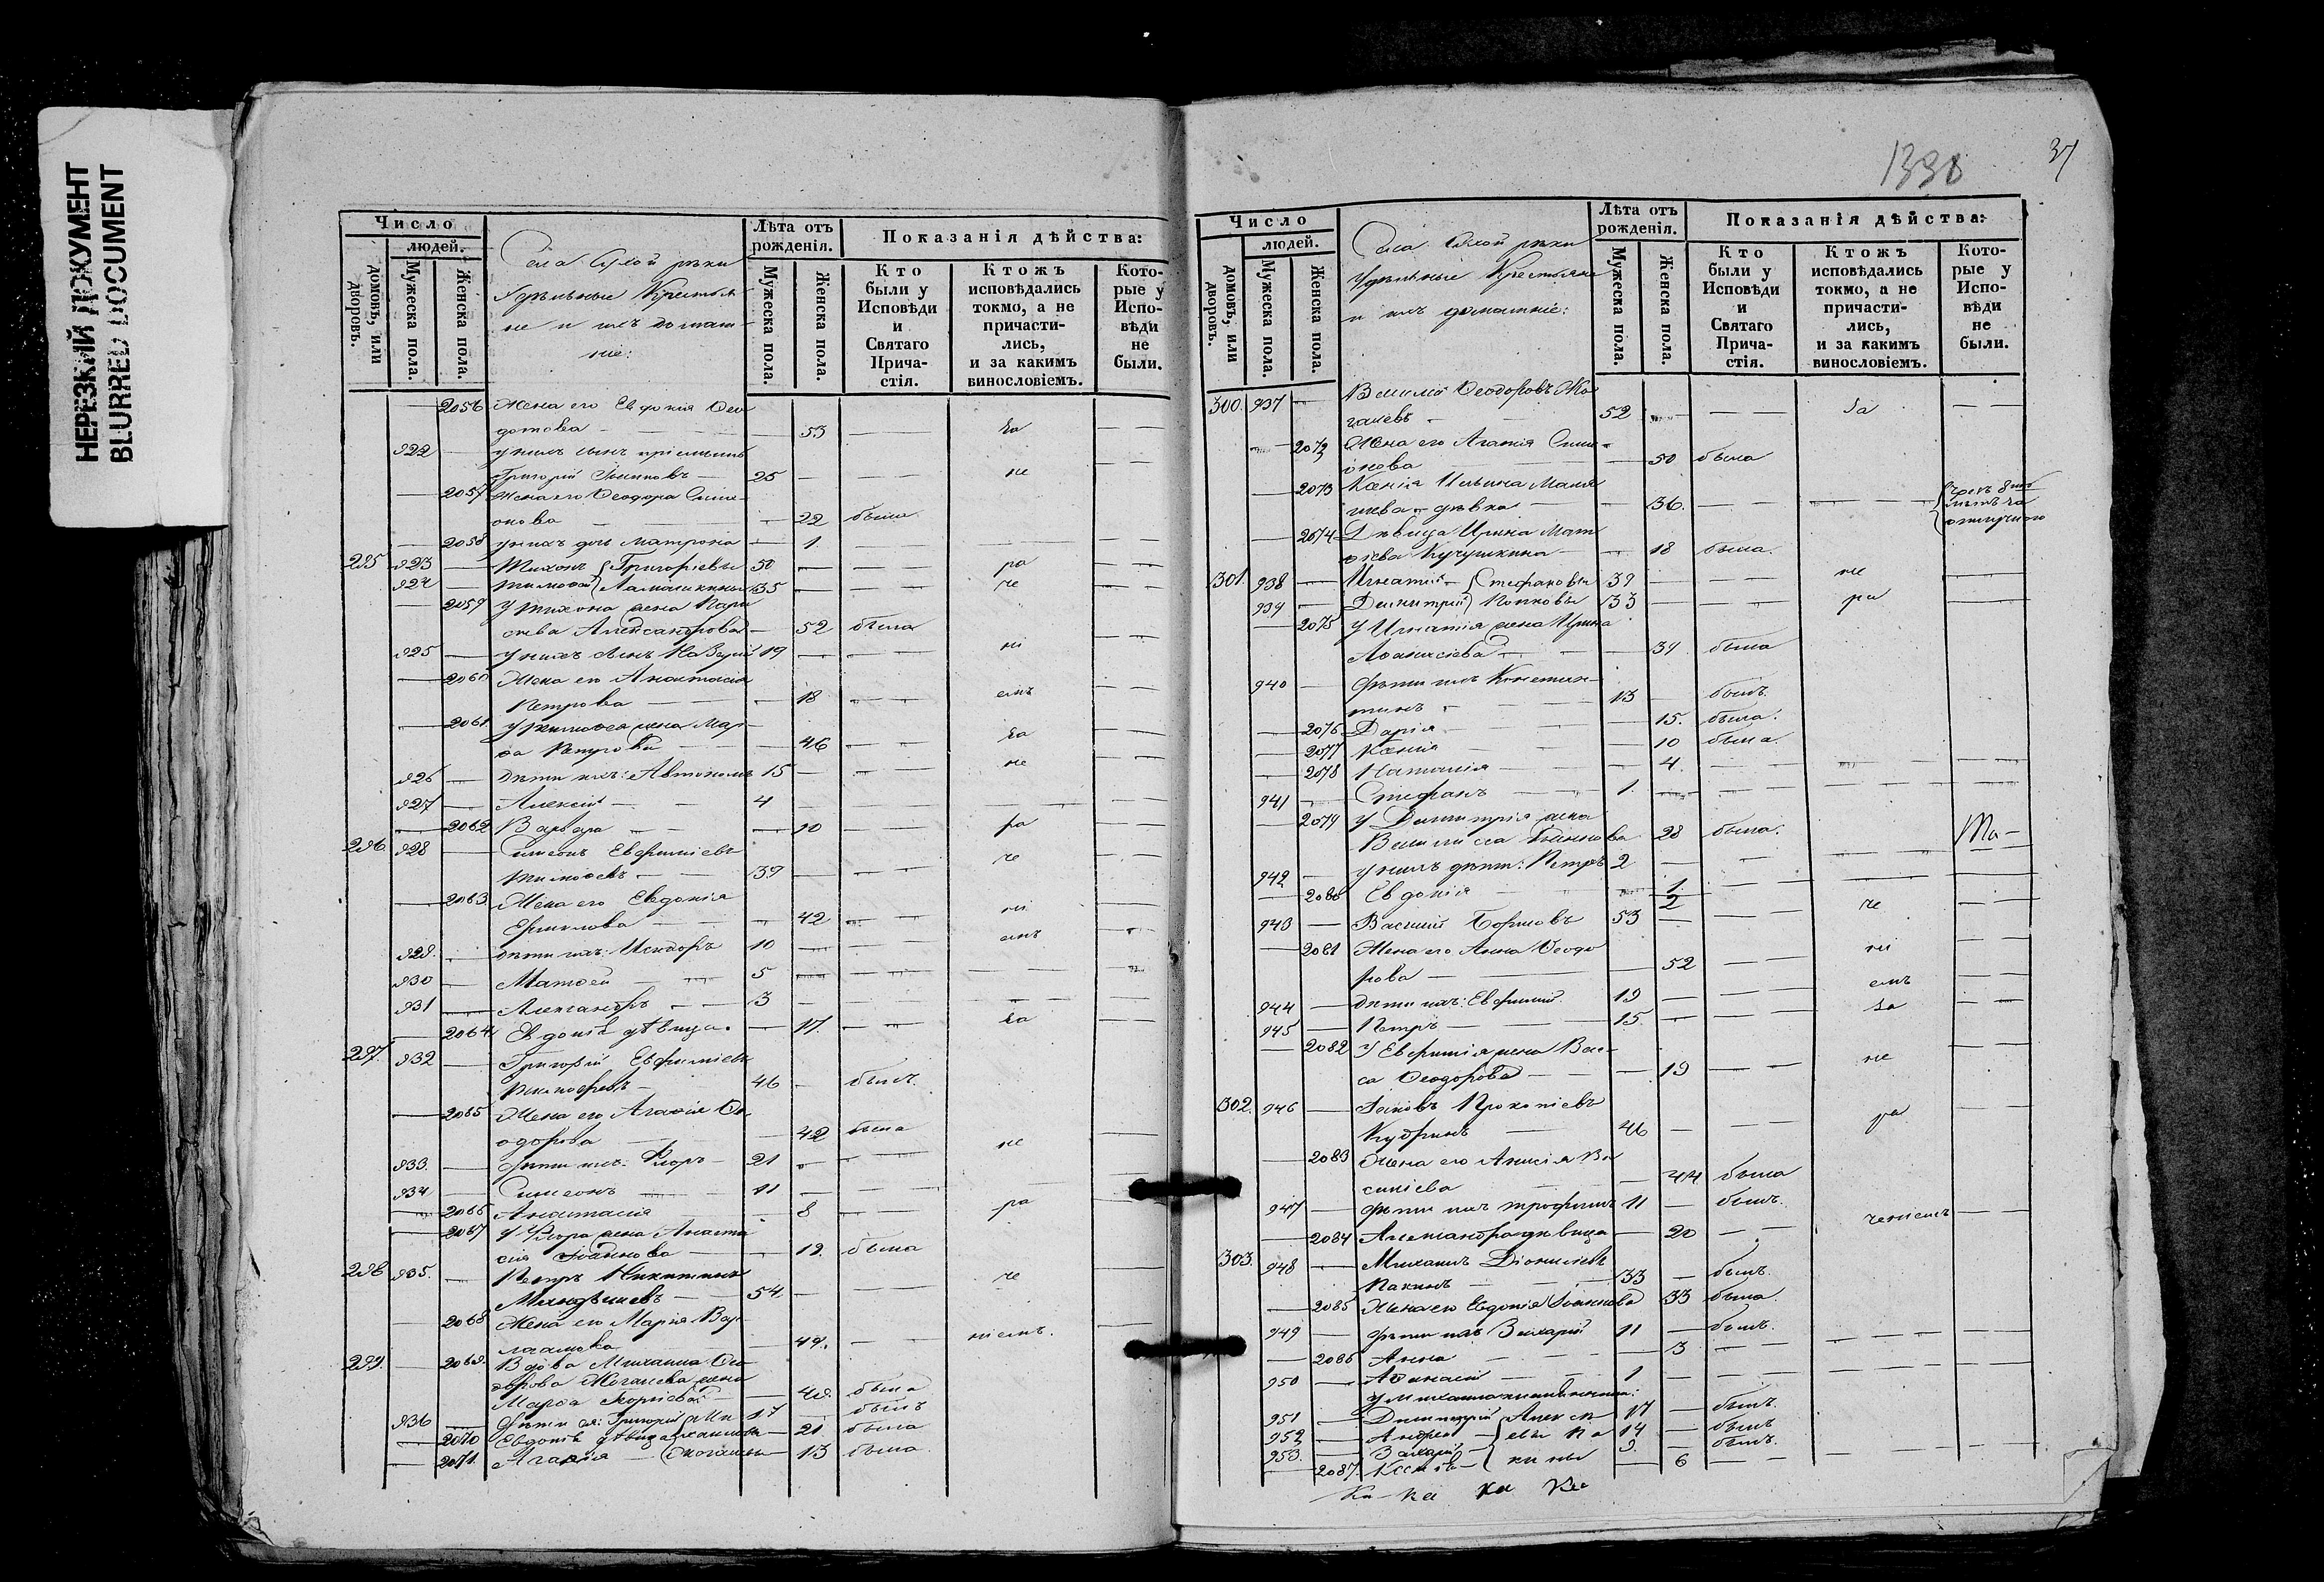 НЕРЕЗКИЙ ДОКУМЕНТ
BLURRED DOCUMENT
Число
людей.
домовъ, или дворовъ.
Мужеска пола.
Женска пола.
Села Сухой рѣки
Удѣльные Крестья
не и ихъ домаш
ніе:
Лѣта отъ рожденія.
Мужеска пола.
Женска пола.
Показанія дѣйства:
Кто были у Исповѣди и Святаго Причастія.
Ктожъ исповѣдались токмо, а не причастились, и за какимъ винословіемъ.
Которые у Исповѣди не были.
2056 Жена его Евдокія Ѳео
дотова 53 За
922 у нихъ сынъ пріемышъ
Григорій 25 не
2057 Жена его Ѳеодора Симе
онова 22 была
2058 у нихъ дочь Матрона 1
295 923 Тихонъ Григорьевы 50 ра
924 Тимоѳей 35 че
2059 У Тихона жена Пара
скева Александрова 52 была
925 у нихъ сынъ 19 ні
2060 Жена его Анастасія
Петрова 18 емъ
2061 У Тимоѳея жена Мар
ѳа Петрова 46 За
926 дѣти ихъ: Автономъ 15 не
927 Алексій 4
2062 Варвара 10 ра
296 928 Симеонъ Евфиміевъ
Тимоѳеевъ 39 че
2063 Жена его Евдокія
Ермилова 42 ні
929 дѣти ихъ: Исидоръ 10 емъ
930 Матѳей 5
931 Александръ 3
2064 Евдокія дѣвица 17 За
297 932 Григорій Евфиміевъ
46 былъ
2065 Жена его Агаѳія Ѳе
одорова 42 была
933 дѣти ихъ: Флоръ 21 не
934 Симеонъ 11
2066 Анастасія 8 ра
2067 У Флора жена Анаста
сія Іоаннова 19 была
298 935 Петръ Никитинъ
54 че
2068 Жена его Марія Вар
лаамова 44 ніемъ
299 2069 Вдова Михаила Ѳео
дорова Жогалева жена
Марѳа 48 была
936 Дѣти ея: Григорій Ми 17 былъ
2070 Евдокія дѣвица хаиловы 21 была
2071 Агаѳія Жогалевы 13 была
1330
37
Число
людей.
домовъ, или дворовъ.
Мужеска пола.
Женска пола.
Села Сухой рѣки
Удѣльные Крестьяне
и ихъ домашніе:
Лѣта отъ рожденія.
Мужеска пола.
Женска пола.
Показанія дѣйства:
Кто были у Исповѣди и Святаго Причастія.
Ктожъ исповѣдались токмо, а не причастились, и за какимъ винословіемъ.
Которые у Исповѣди не были.
300 937 Ѳеодоровъ Жо
галевъ 52 За
2072 Жена его Агаѳія Симе
онова 50 была
2073 Ксенія Ильина
дѣвка 36
2074 Дѣвица Ирина Мат
ѳеева Кучушкина 18 была
301 938 Игнатій Стефановы 39 не
939 Димитрій Попковы 33 ра
2075 У Игнатія жена Ирина
Аѳанасіева 34 была
940 дѣти ихъ Констан
тинъ 13 былъ
2076 Дарія 15 была
2077 Ксенія 10 была
2078 Наталія 4
941 Стефанъ 1
2079 У Димитрія жена
Василиса 28 была
942 у нихъ дѣти: Петръ 2
2080 Евдокія 1 2
943 Василій Борисовъ 53 че
2081 Жена его Анна Ѳеодо
рова 52 ні
944 дѣти ихъ: Евфимій 19 емъ
945 Петръ 15 За
2082 У Евфимія жена Вас
са Ѳеодорова 19 не
302 946 Іаковъ Прокопіевъ
Кудринъ 46 ра
2083 Жена его Анисія Ва
силіева 44 была
947 дѣти ихъ Трофимъ 11 былъ
2084 Александра дѣвица 20 ченіемъ
303 948 Михаилъ Діонисіевъ
Пакинъ 33 былъ
2085 Жена его Евдокія Іоаннова 33 была
949 дѣти ихъ Захарій 11 былъ
2086 Анна 3
950 Аѳанасій 1
У Михаила племянники:
951 Димитрій Алексѣ 17 былъ
952 Андрей евы Па 14 былъ
953 Захарій кины 9 былъ
2087 Ксенія 6